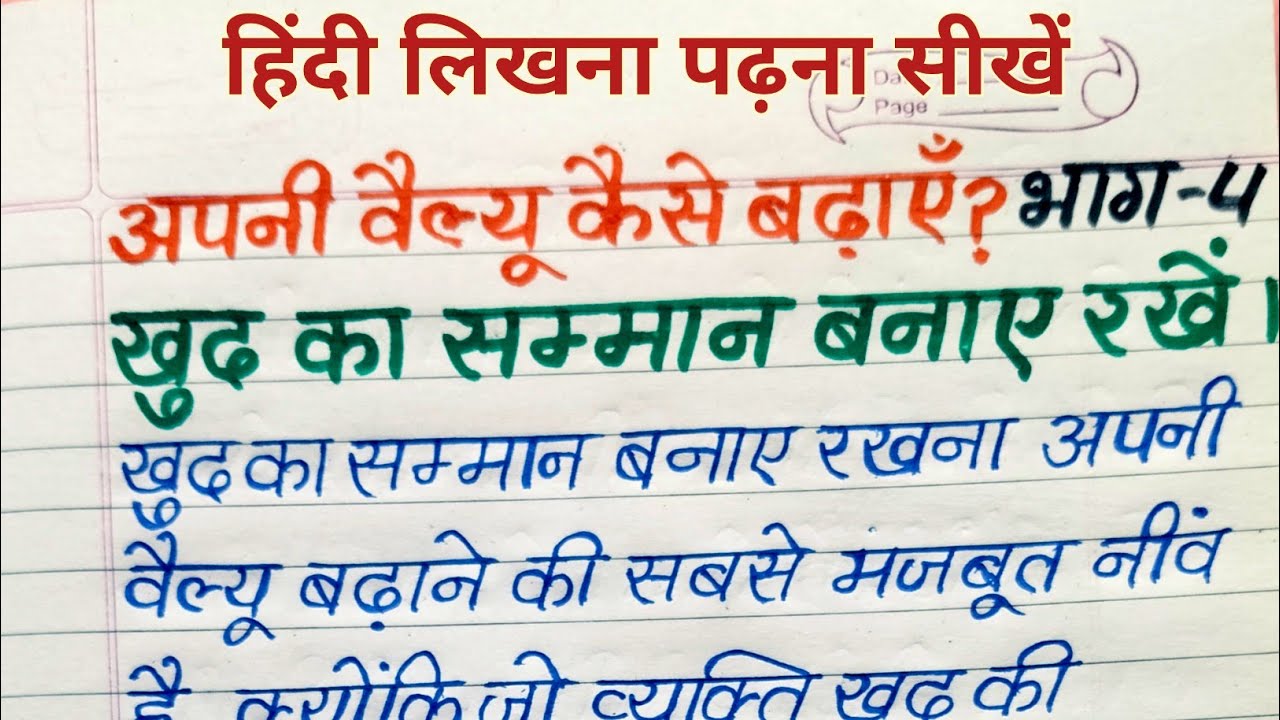 हिंदी लिखना पढ़ना सीखें
Da
Page
अपनी वैल्यू कैसे बढ़ाएँ? भाग-4
खुद का सम्मान बनाए रखें।
खुद का सम्मान बनाए रखना अपनी
वैल्यू बढ़ाने की सबसे मजबूत नींव
है, क्योंकि जो व्यक्ति खुद की